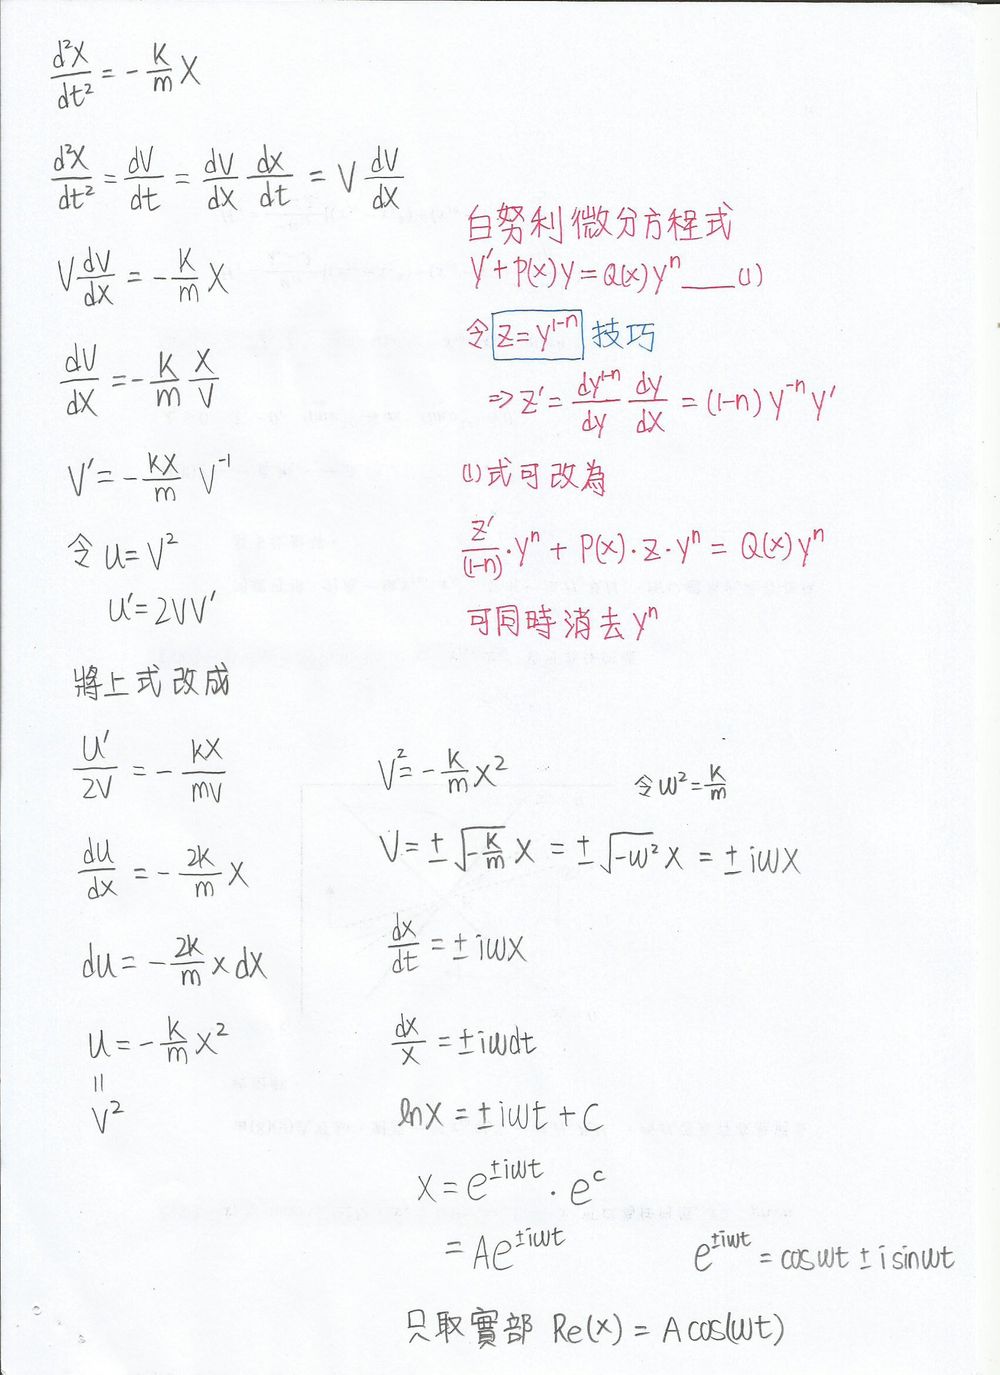 d²x/dt² = -k/m x
d²x/dt² = dV/dt = dV/dx dx/dt = V dV/dx
V dV/dx = -k/m x
dV/dx = -k/m x/V
V' = -kx/m V⁻¹
令 u = V²
u' = 2VV'
將上式改成
u'/2V = -kx/mV
du/dx = -2k/m x
du = -2k/m x dx
u = -k/m x²
=
V²
白努利微分方程式
y' + P(x)y = Q(x)yⁿ ___ (1)
令 z = y¹⁻ⁿ 技巧
⇒ z' = dy¹⁻ⁿ/dy dy/dx = (1-n) y⁻ⁿ y'
(1)式可改為
z'/(1-n)·yⁿ + P(x)·z·yⁿ = Q(x)yⁿ
可同時消去 yⁿ
V² = -k/m x²
令 ω² = k/m
V = ±√(-k/m) x = ±√(-ω²) x = ±iωx
dx/dt = ±iωx
dx/x = ±iωdt
lnx = ±iωt + C
x = e^(±iωt) · e^c
= Ae^(±iωt)
e^(±iωt) = cosωt ± i sinωt
只取實部 Re(x) = A cos(ωt)